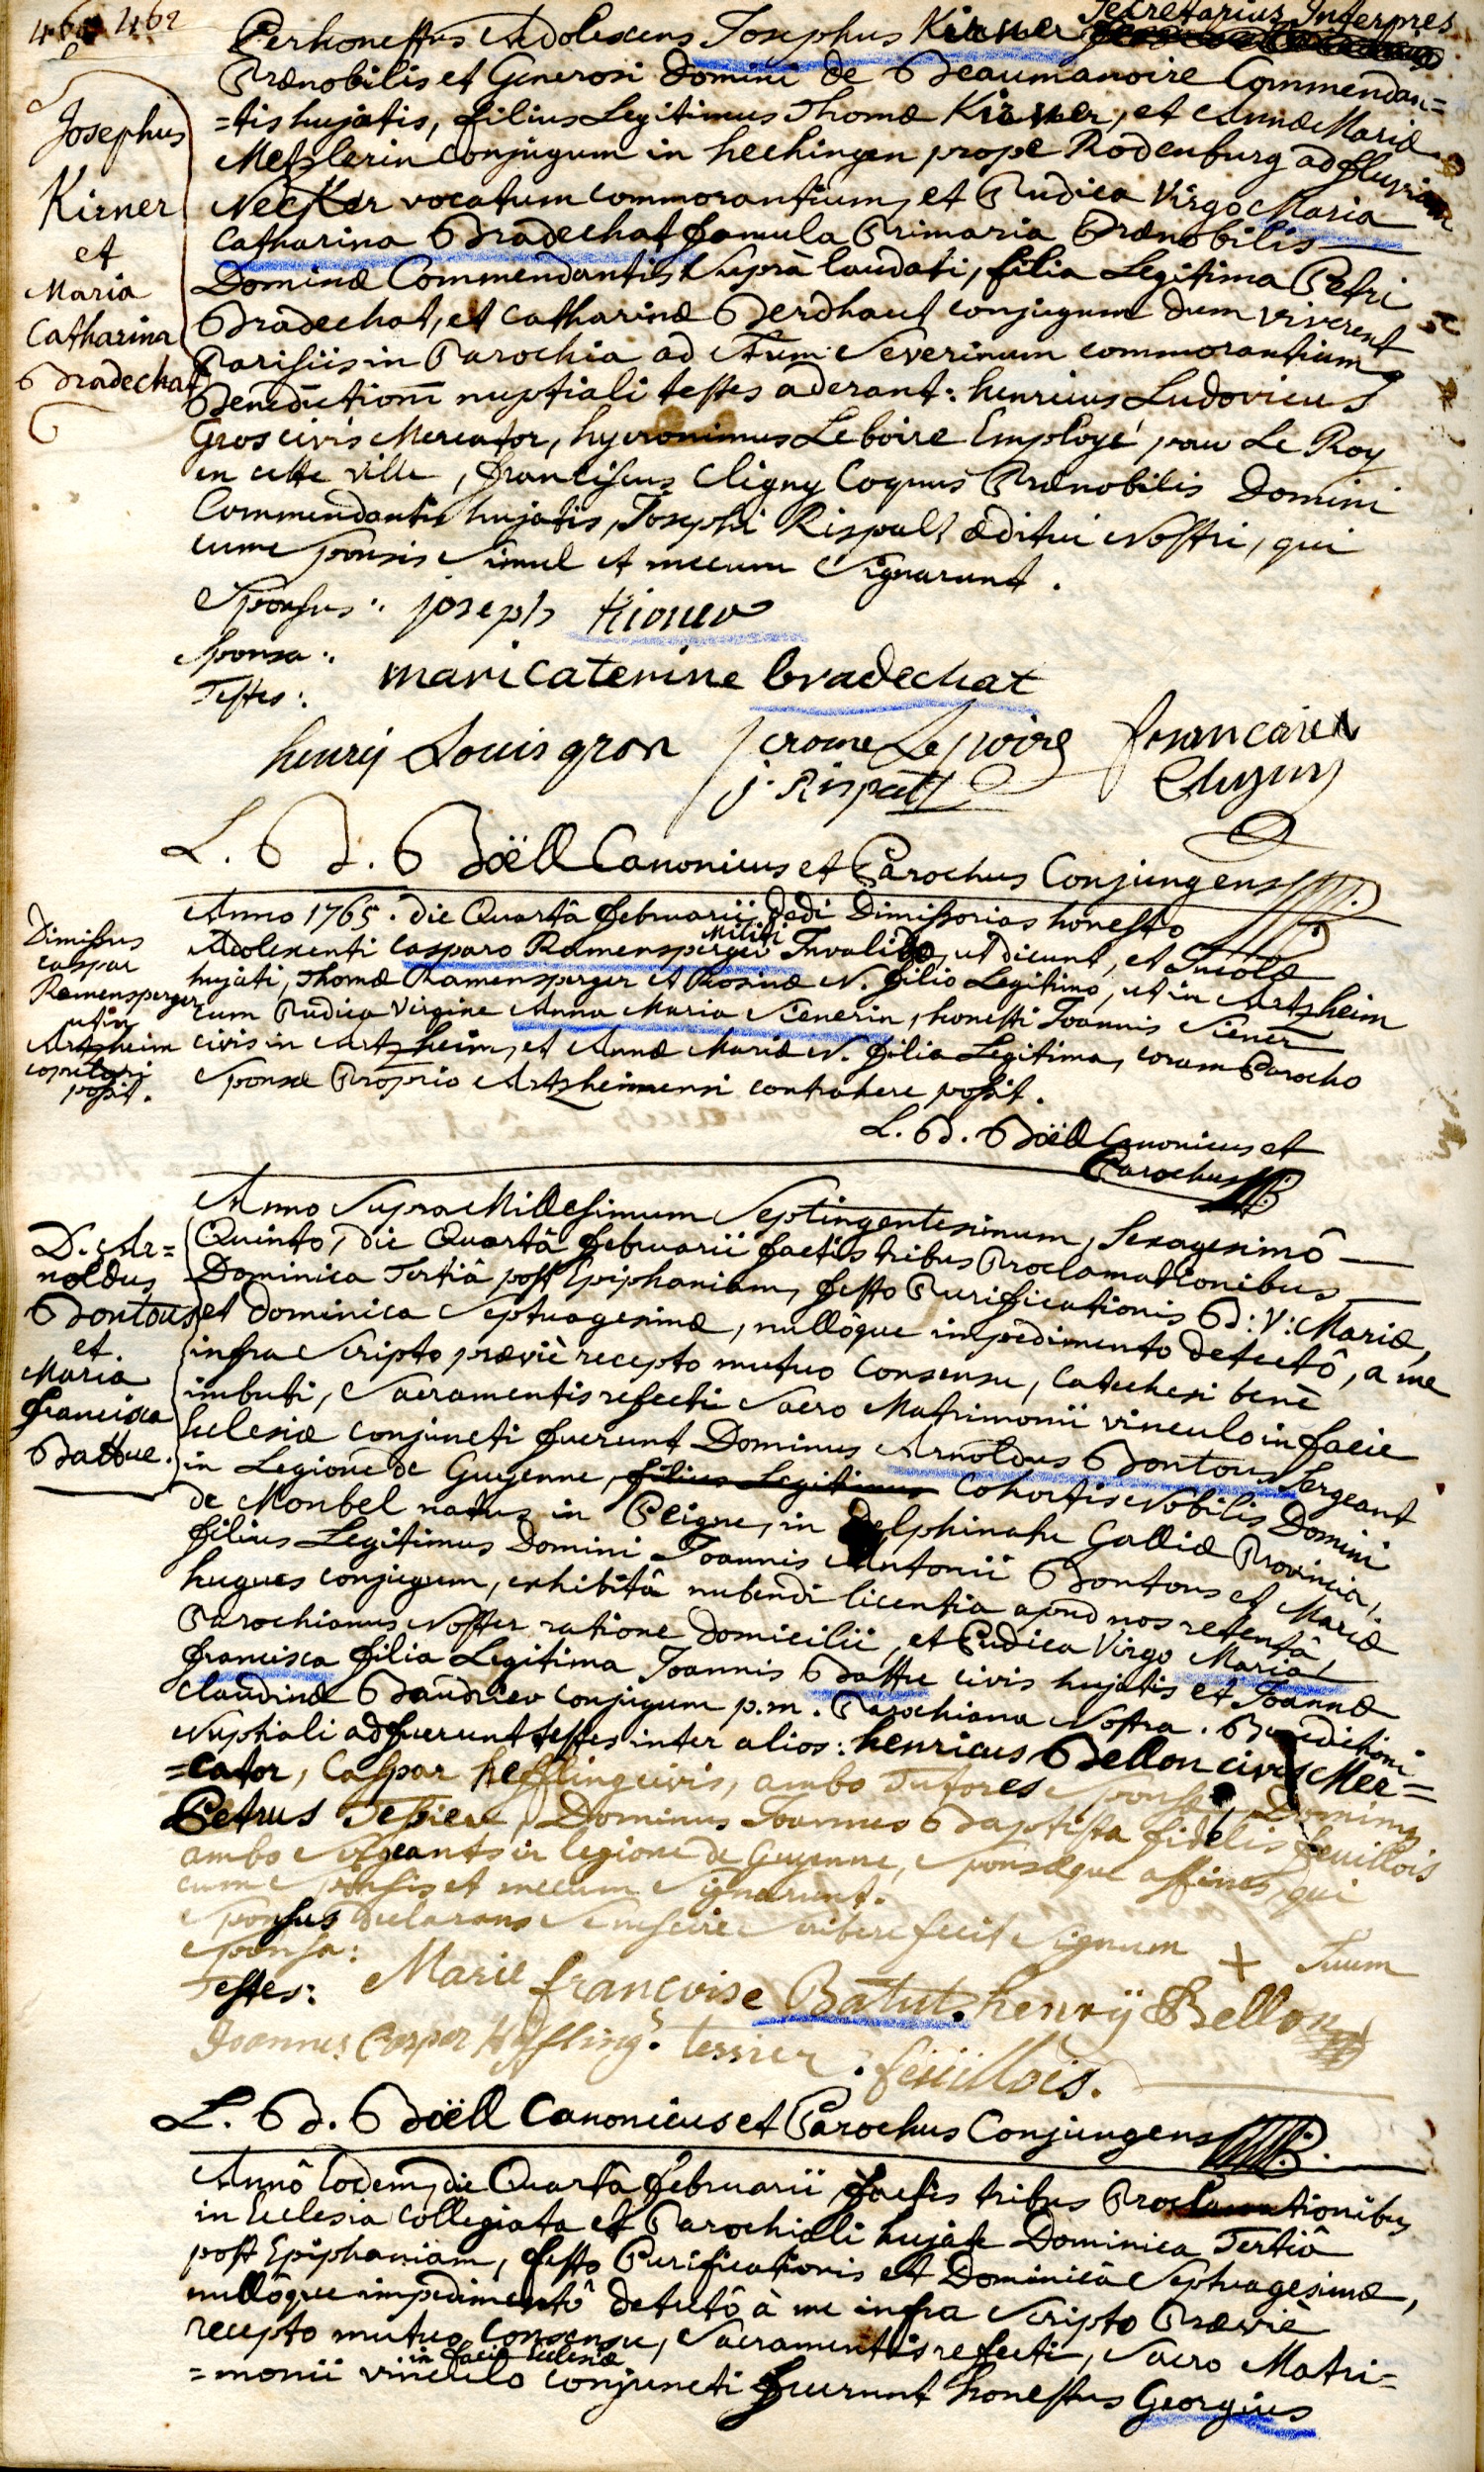 462
Secretarius Interpres
Perhonestus Adolescens Josephus Kirner
Prænobilis et Generosi Domini de Beaumanoire Commendan=
=tis hujatis, filius Legitimus Thomæ Kirner, et Annæ Mariæ
Metzlerin conjugum in hechingen prope Rodenburg ad fluvium
Necker vocatum commorantium, et Pudica Virgo Maria
Catharina Bradechat famula Primaria Prænobilis
Dominæ Commendantis Suprà laudati, filia Legitima Petri
Bradechat, et Catharinæ Berdhaut conjugum dum viverent
Parisiis in Parochia ad Stum Severinum commorantium
Benedictioni nuptiali testes aderant: henricus Ludovicus
Gros civis Mercator, hyeronimus Leboire Employé pour Le Roy
en cette ville, franciscus Cligny Coquus Prænobilis Domini
Commendantis hujatis, Josephi Rispalt æditui Nostri, qui
cum Sponsis Simul et mecum Signarunt.
Josephus
Kirner
et
Maria
Catharina
Bradechat
Sponsus: joseph Kirner
Sponsa: mari caterine bradechat
Testes:
henrÿ Louis gros Jerome Le poire francois
j. Rispalt Clugny
L. B. Boëll Canonicus et Parochus Conjungens
Anno 1765. die Quartâ februarii dedi Dimissorias honesto
Militi
Adolescenti Casparo Ramensperger Invalido, ut dicunt, et Incolæ
hujati, Thomæ Ramensperger et Rosinæ N. filio Legitimo, ut in Artzheim
cum Pudica Virgine Anna Maria Sienerin, honesti Joannis Siener
civis in Artzheim, et Annæ Mariæ N. filia Legitima, coram Parocho
Sponsæ Proprio Artzheimensi contrahere possit.
Dimissus
caspar
Ramensperger
ut in
Artzheim
copulari
possit.
L. B. Boëll Canonicus et
Parochus
Anno Supra Millesimum Septingentesimum, Sexagesimô
Quinto, die Quartâ februarii factis tribus Proclamationibus
Dominica Tertiâ post Epiphaniam, festo Purificationis B: V: Mariæ,
et dominica Septuagesimæ, nullôque impedimento detectô, a me
infra Scripto præviè recepto mutuo consensu, Catechesi benè
imbuti, Sacramentis refecti Sacro Matrimonii vinculo in facie
Ecclesiæ conjuncti fuerunt Dominus Arnoldus Bontous Sergeant
in Legione de Guyenne, filius Legitimus Cohortis Nobilis Domini
de Monbel natus in Peigne, in Delphinatu Galliæ Provincia,
filius Legitimus Domini Joannis Antonii Bontous et Mariæ
hugues conjugum, exhibitâ nubendi licentia apud nos retentâ,
Parochianus Noster ratione domicilii, et Pudica Virgo Maria
francisca filia Legitima Joannis Battue civis hujatis et Joannæ
Claudinæ Baudrieu conjugum p.m. Parochiana Nostra. Benedictioni
Nuptiali adfuerunt testes inter alios: henricus Bellon civis Mer=
=cator, Caspar Heffling civis, ambo Tutores Sponsæ, Dominus
Petrus Tessier, Dominus Joannes Baptista fidelis feuillois
ambo Sergeants in legione de Guyenne, Sponsæque affines, qui
cum Sponsis et mecum Signarunt.
D. Ar=
noldus
Bontous
et
Maria
francisca
Battue.
Sponsus declarans Se nescire Scribere fecit Signum + Suum
Sponsa: Marie françoise Batut. henrÿ Bellon
Testes:
Joannes Casper Heffling. tessier. feüillois.
L. B. Boëll Canonicus et Parochus Conjungens
Annô Eodem, die Quartâ februarii, factis tribus Proclamationibus
in Ecclesia Collegiata et Parochiali hujate Dominica Tertiâ
post Epiphaniam, festo Purificationis et Dominicâ Septuagesimæ,
nullôque impedimentô detectô à me infra Scripto Præviè
recepto mutuo Consensu, Sacramentis refecti, Sacro Matri=
in facie Ecclesiæ
=monii vinculo conjuncti fuerunt honestus Georgius